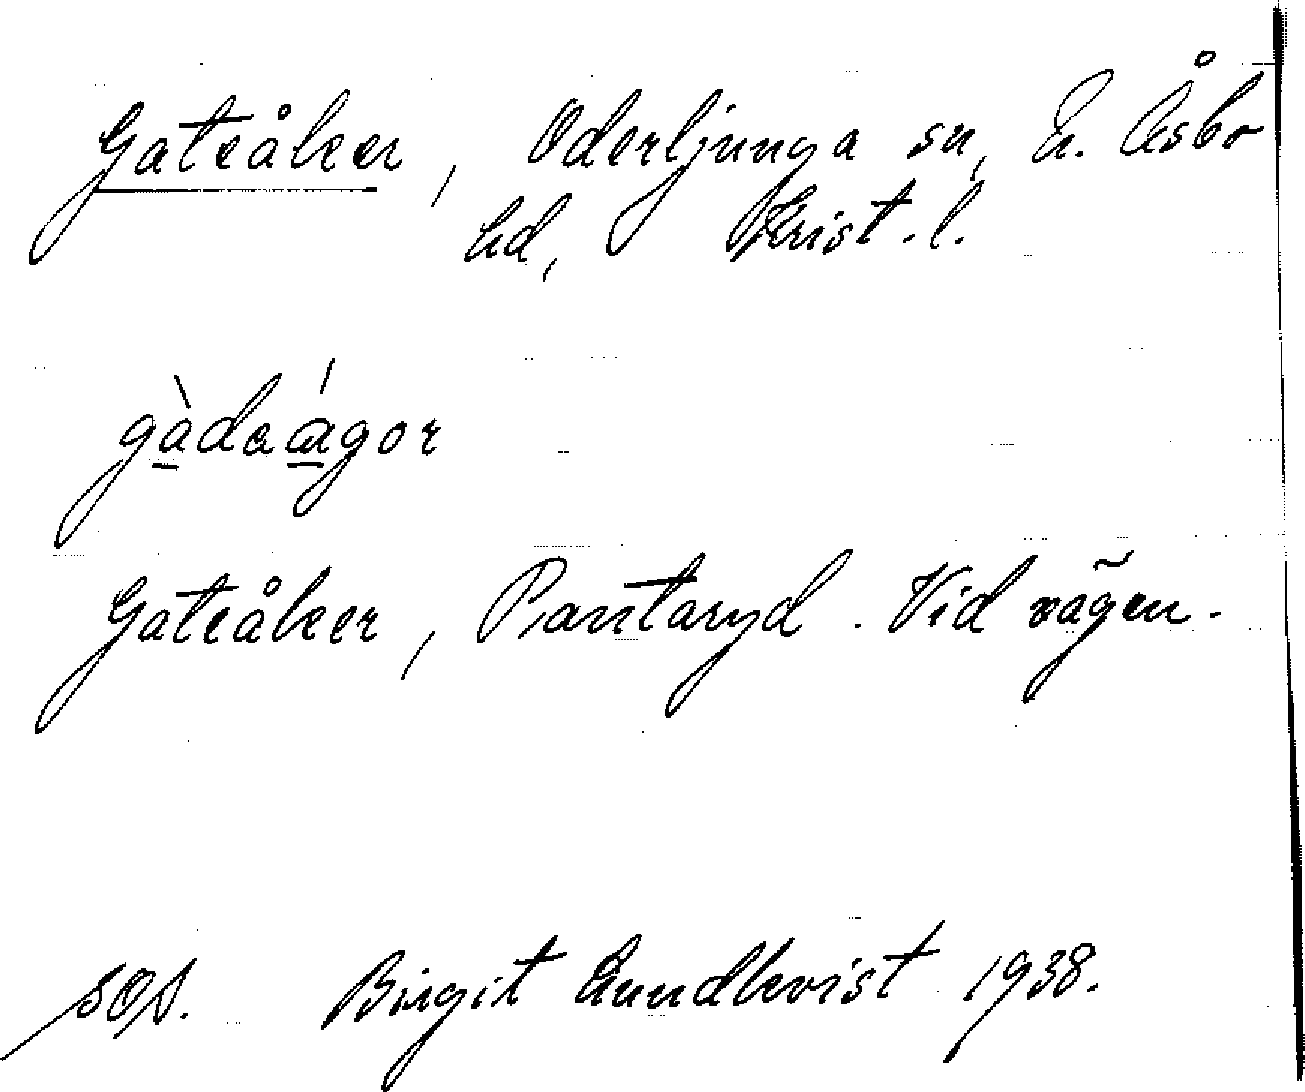 Gateåker, Oderljunga sn, N. Åsbo
hd, Krist. l.
gàdeágor
Gateåker, Pantaryd. Vid vägen.
SOA. Birgit Lundkvist 1938.